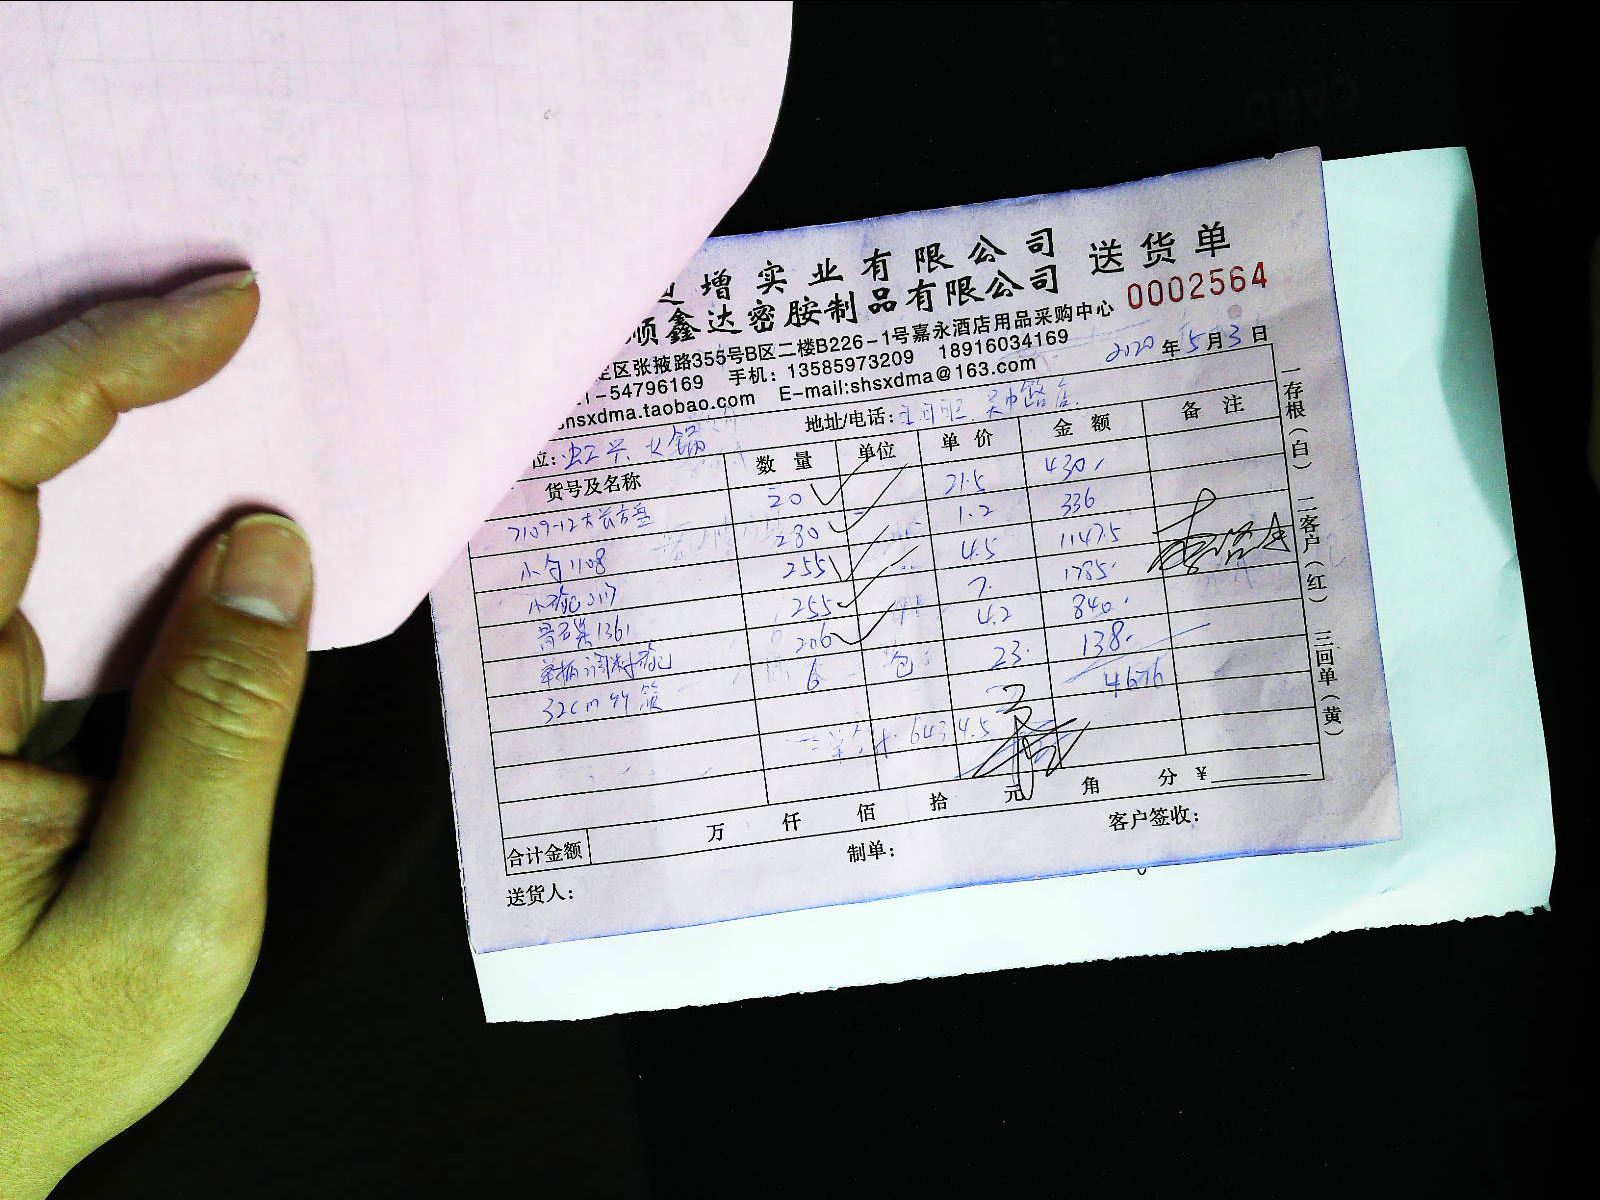 增实业有限公司 送货单
顺鑫达密胺制品有限公司 0002564
区张掖路355号B区二楼B226-1号嘉永酒店用品采购中心
1-54796169 手机：13585973209 18916034169
hsxdma.taobao.com E-mail:shsxdma@163.com
2020年5月3日
位：虹兴火锅 地址/电话：
货号及名称 数量 单位 单价 金额 备注
7109-12大长方盘 20 21.5 430
小勺1108 280 1.2 336
小碗 255 4.5 1147.5
骨石碟1361 255 7. 1785.
单柄调料碗 206 4.2 840.
32cm竹筷 6 包 23. 138.
4676
6434.5
合计金额 万 仟 佰 拾 元 角 分 ¥
送货人： 制单： 客户签收：
一存根（白） 二客户（红） 三回单（黄）